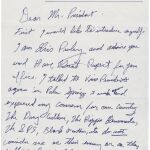 Dear Mr. President
First I would like to introduce myself.
I am Elvis Presley and admire you
and Have Great Respect for your
office. I talked to Vice President
Agnew in Palm Springs 3 weeks and
expressed my concern for our country.
The Drug Culture, The Hippie Elements,
The SDS, Black Panthers, etc do not
consider me as their enemy or as they